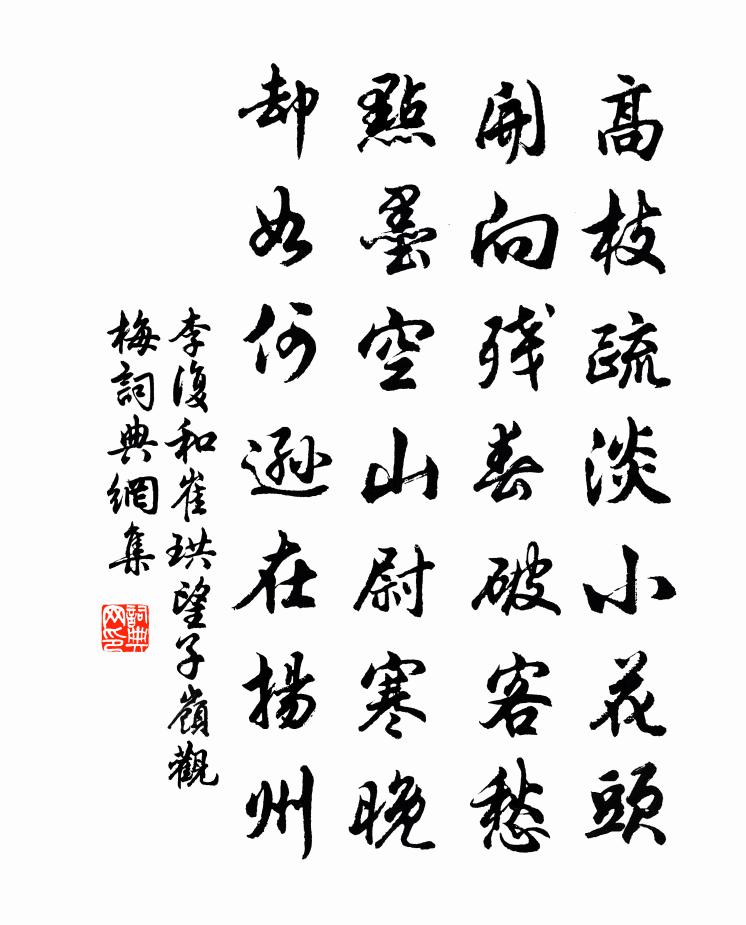 高枝疏淡小花頭
開向残春破客愁
點墨空山尉寒晚
却如何遜在揚州
李復和崔珙望子嶺觀
梅詞典網集
詞典网印